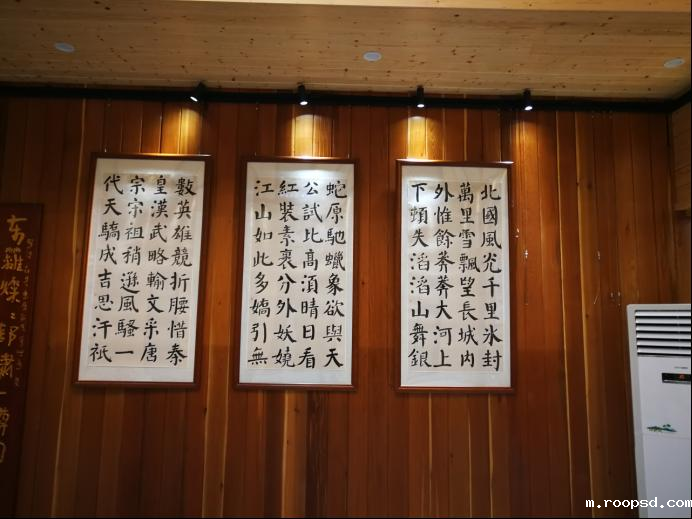 北國風光千里氷封
萬里雪飄望長城内
外惟餘莽莽大河上
下頓失滔滔山舞銀
蛇原馳蠟象欲與天
公試比高湏晴日看
紅裝素裹分外妖嬈
江山如此多嬌引無
數英雄競折腰惜秦
皇漢武略輸文采唐
宗宋祖稍遜風騷一
代天驕成吉思汗祇
m.roopsd.com